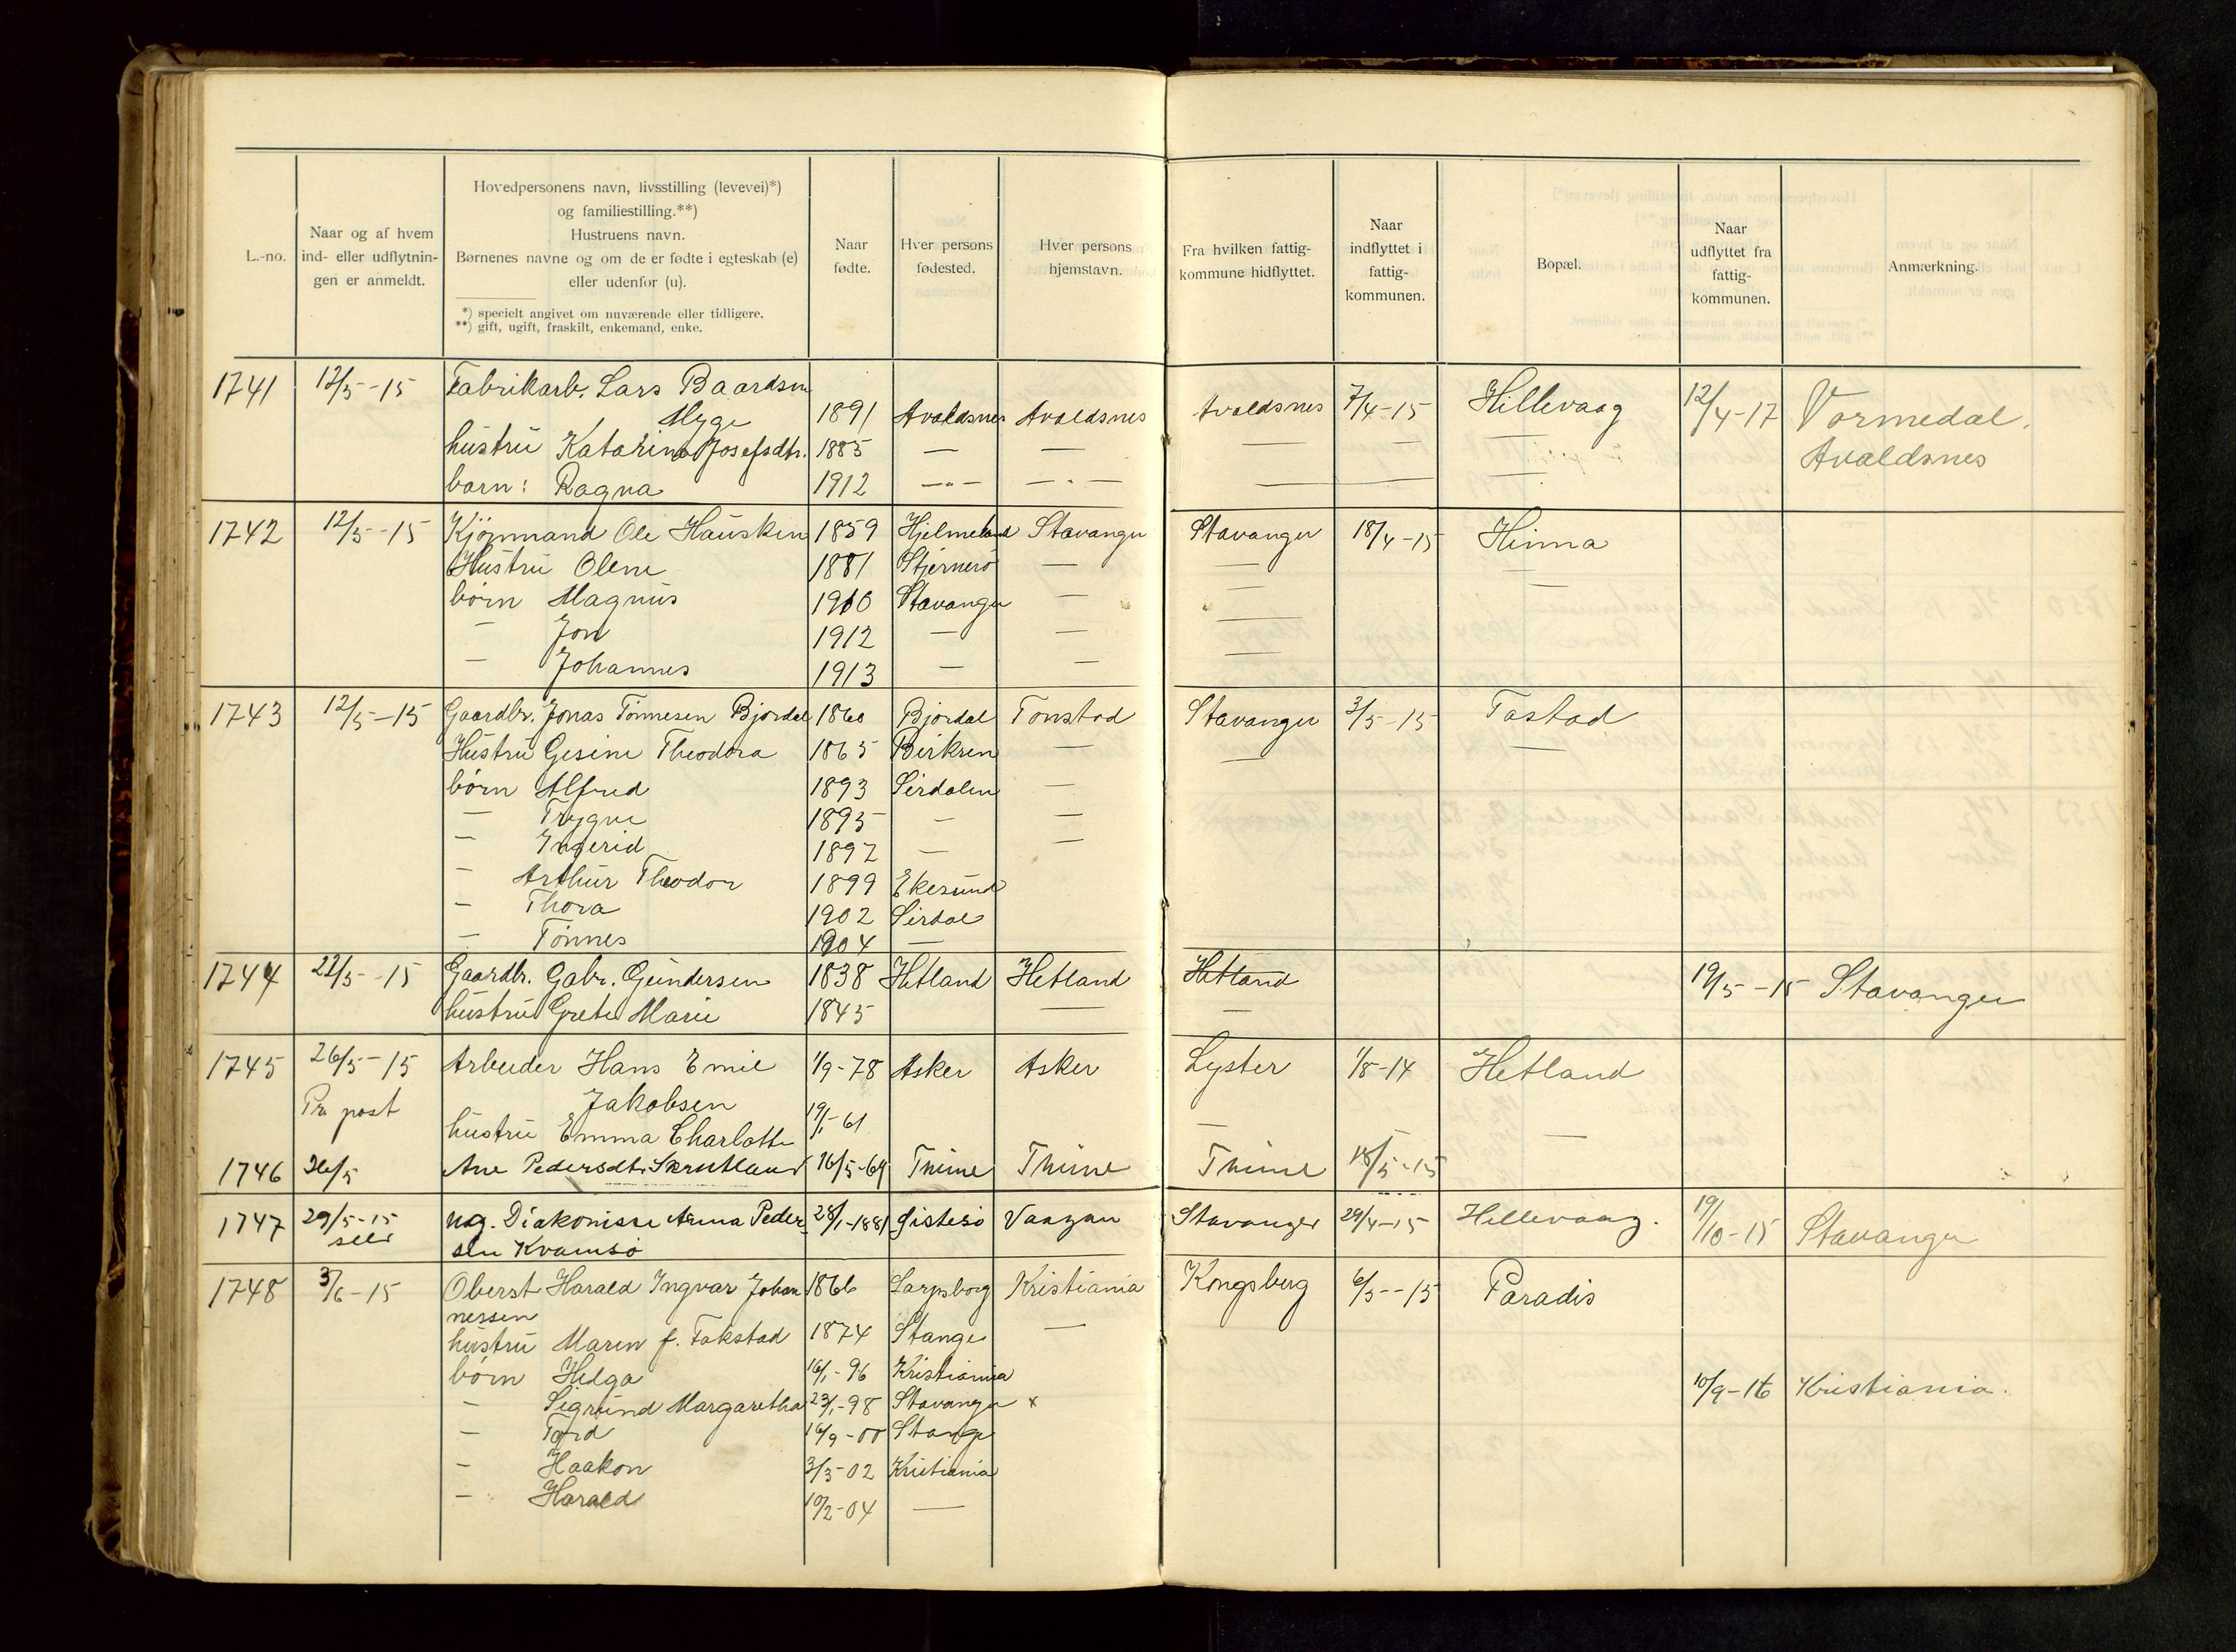 L.-no.
Naar og af hvem ind- eller udflytnin-gen er anmeldt.
Hovedpersonens navn, livsstilling (levevei)*)
og familiestilling.**)
Hustruens navn.
Børnenes navne og om de er fødte i egteskab (e)
eller udenfor (u).
*) specielt angivet om nuværende eller tidligere.
**) gift, ugift, fraskilt, enkemand, enke.
Naar fødte.
Hver persons fødested.
Hver persons hjemstavn.
Fra hvilken fattig-kommune hidflyttet.
Naar indflyttet i fattig-kommunen.
Bopæl.
Naar udflyttet fra fattig-kommunen.
Anmærkning.
1741 12/5-15 Fabrikarb. Lars Baardsen
Myge 1891 Avaldsnes Avaldsnes Avaldsnes 7/4-15 Hillevaag 12/4-17 Vormedal.
hustru Katarina Josefsdtr. 1885 — — — — — Avaldsnes
barn: Ragna 1912 —"— —"— — —
1742 12/5-15 Kjøpmand Ole Hausken 1859 Hjelmeland Stavanger Stavanger 18/4-15 Hinna
Hustru Olene 1881 Stjernerö — — —
börn Magnus 1910 Stavanger — —
— Jon 1912 — — —
— Johannes 1913 — — —
1743 12/5-15 Gaardbr. Jonas Tönnesen Bjordal 1860 Bjordal Tonstad Stavanger 3/5-15 Tastad
Hustru Gesine Theodora 1865 Birkren — — —
börn Alfred 1893 Sirdalen —
— Trygve 1895 — —
— Ingerid 1897 — —
— Arthur Theodor 1899 Ekersund
— Thora 1902 Sirdal
— Tönnes 1904 —
1744 22/5-15 Gaardbr. Gabr. Gundersen 1838 Hetland Hetland Hetland 19/5-15 Stavanger
hustru Grete Marie 1845 — —
1745 26/5-15 Arbeider Hans Emil 1/9-78 Asker Asker Lyster 1/8-14 Hetland
Pr post Jakobsen
hustru Emma Charlotte 19/1-61 — — —
1746 26/5 Ane Pedersdtr Skrutland 16/5-69 Thime Thime Thime 18/5-15
1747 29/5-15 ug. Diakonisse Anna Peder- 28/1-1881 Gistesö Vaagan Stavanger 29/4-15 Hillevaag. 19/10-15 Stavanger
selv sen Kvamsö
1748 3/6-15 Oberst Harald Ingvar Johan 1866 Sarpsborg Kristiania Kongsberg 6/5-15 Paradis
nessen
hustru Maren f. Takstad 1874 Stange —
börn Helga 16/1-96 Kristiania 10/9-16 Kristiania.
— Sigrund Margaretha 23/1-98 Stavanger x
— Tord 16/9-00 Stange
— Haakon 3/3-02 Kristiania
— Harald 10/2-04 —